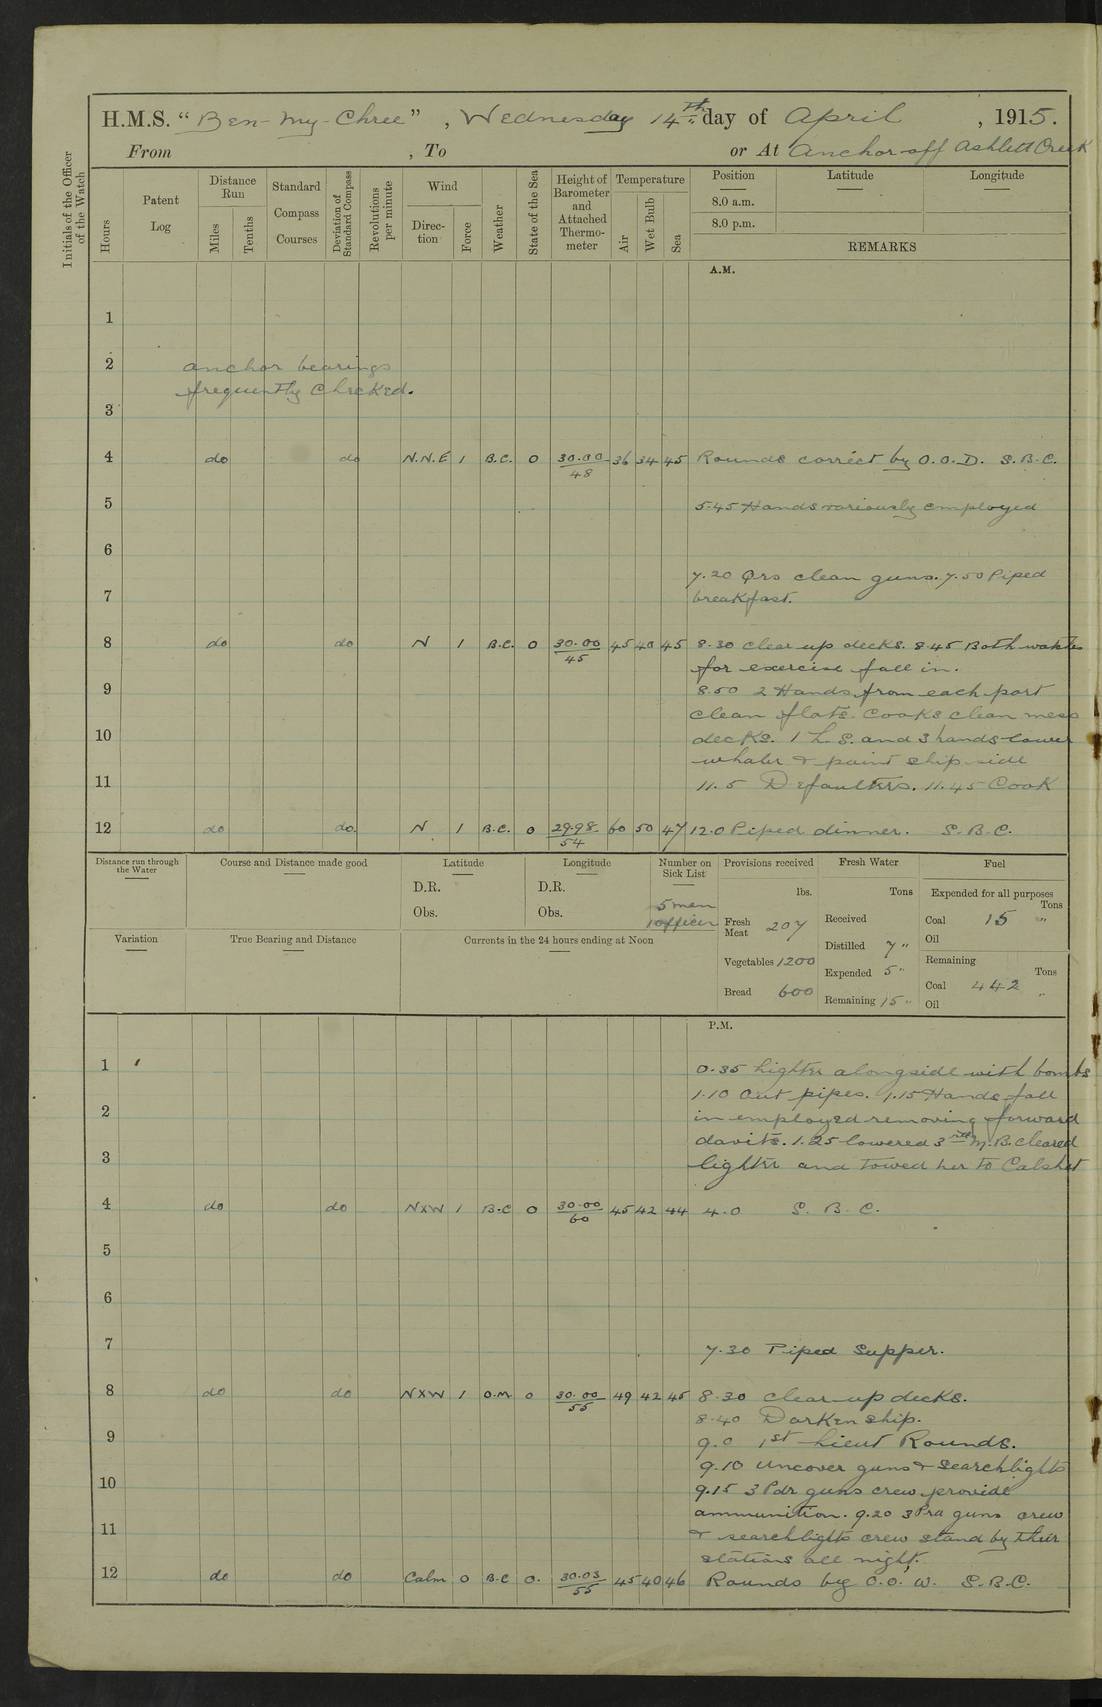 H.M.S. “Ben-my-Chree” , Wednesday 14th day of April , 1915.
From , To or At Anchor off Ashlett Creek
Initials of the Officer of the Watch
Hours
Patent Log
Distance Run
Miles
Tenths
Standard Compass Courses
Deviation of Standard Compass
Revolutions per minute
Wind
Direction
Force
Weather
State of the Sea
Height of Barometer and Attached Thermometer
Temperature
Air
Wet Bulb
Sea
Position Latitude Longitude
8.0 a.m.
8.0 p.m.
REMARKS
A.M.
1
2 anchor bearings
frequently checked.
3
4 do do N.N.E 1 B.C. 0 30.00/48 36 34 45 Rounds correct by O.O.D. S.B.C.
5 5.45 Hands variously employed
6
7.20 Qrs clean guns. 7.50 Piped
7 breakfast.
8 do do N 1 B.C. 0 30.00/45 45 40 45 8.30 clear up decks. 8.45 Both watches
for exercise fall in.
9 8.50 2 Hands from each part
clean flats. Cooks clean mess
10 decks. 1 L.S. and 3 hands lower
whaler & paint ship side
11 11.5 Defaulters. 11.45 Cook
12 do do. N 1 B.C. 0 29.98/54 60 50 47 12.0 Piped dinner. S.B.C.
Distance run through the Water
Course and Distance made good
Latitude
D.R.
Obs.
Longitude
D.R.
Obs.
Number on Sick List
5 men
1 officer
Provisions received
lbs.
Fresh Meat 207
Vegetables 1200
Bread 600
Fresh Water
Tons
Received
Distilled 7 "
Expended 5 "
Remaining 15 "
Fuel
Expended for all purposes
Tons
Coal 15 "
Oil
Remaining
Tons
Coal 442 "
Oil
Variation
True Bearing and Distance
Currents in the 24 hours ending at Noon
P.M.
1 0.35 lighter alongside with bombs
1.10 Out pipes. 1.15 Hands fall
2 in employed removing forward
davits. 1.25 lowered 3rd M.B. cleared
3 lighter and towed her to Calshot
4 do do NXW 1 B.C 0 30.00/60 45 42 44 4.0 S.B.C.
5
6
7 7.30 Piped Supper.
8 do do NXW 1 O.M. 0 30.00/55 49 42 45 8.30 clear up decks.
8.40 Darken ship.
9 9.0 1st Lieut Rounds.
9.10 Uncover guns & searchlights
10 9.15 3 Pdr guns crew provide
ammunition. 9.20 3 Pra guns crew
11 & searchlights crew stand by their
stations all night.
12 do do Calm 0 B.C 0. 30.03/55 45 40 46 Rounds by O.O.W. S.B.C.